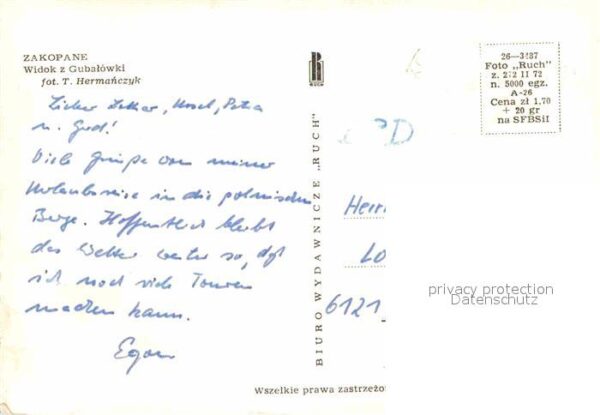 ZAKOPANE
Widok z Gubałówki
fot. T. Hermańczyk
Lieber Lothar, Petra
u. Gerd!
Viele Grüße von meiner
Urlaubsreise in die polnischen
Berge. Hoffentlich bleibt
das Wetter weiter so, daß
ich noch viele Touren
machen kann.
Egon
RUCH
BIURO WYDAWNICZE „RUCH"
26—3487
Foto „Ruch"
z. 272 II 72
n. 5000 egz.
A-26
Cena zł 1,70
+ 20 gr
na SFBSiI
Herr
Lo
6121
privacy protection
Datenschutz
Wszelkie prawa zastrzeżo